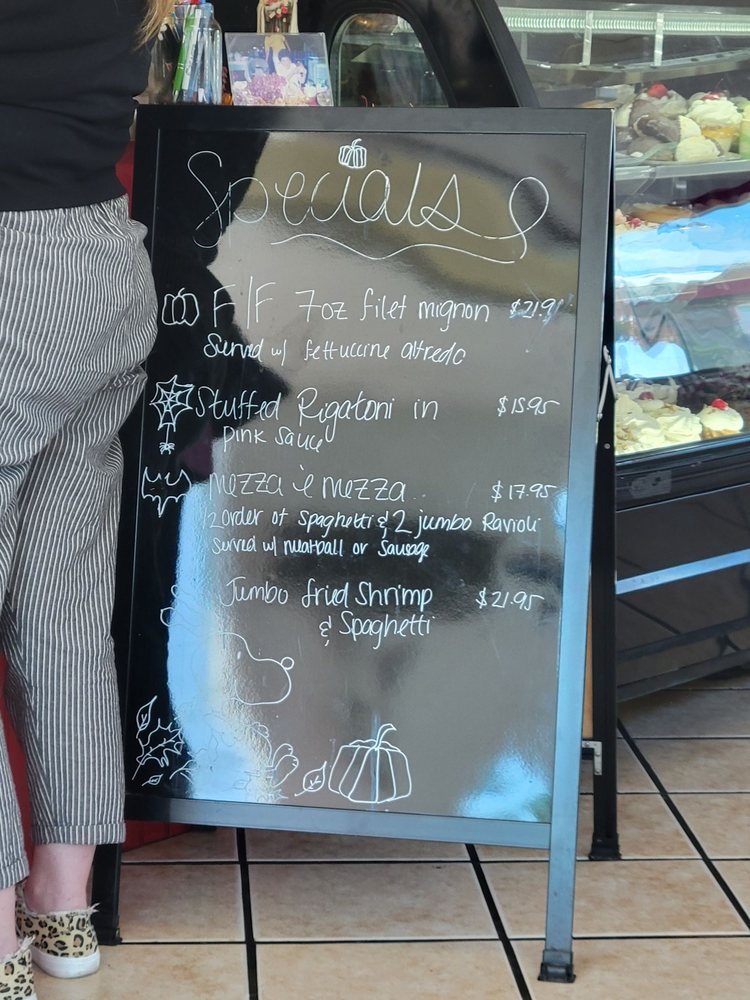 Specials
F/F 7oz filet mignon $21.9
Served w/ fettuccine alfredo
Stuffed Rigatoni in $15.95
pink sauce
Mezza 'e mezza.. $17.95
order of spaghetti & 2 jumbo Ravioli
Served w/ meatball or Sausage
Jumbo fried Shrimp $21.95
& Spaghetti